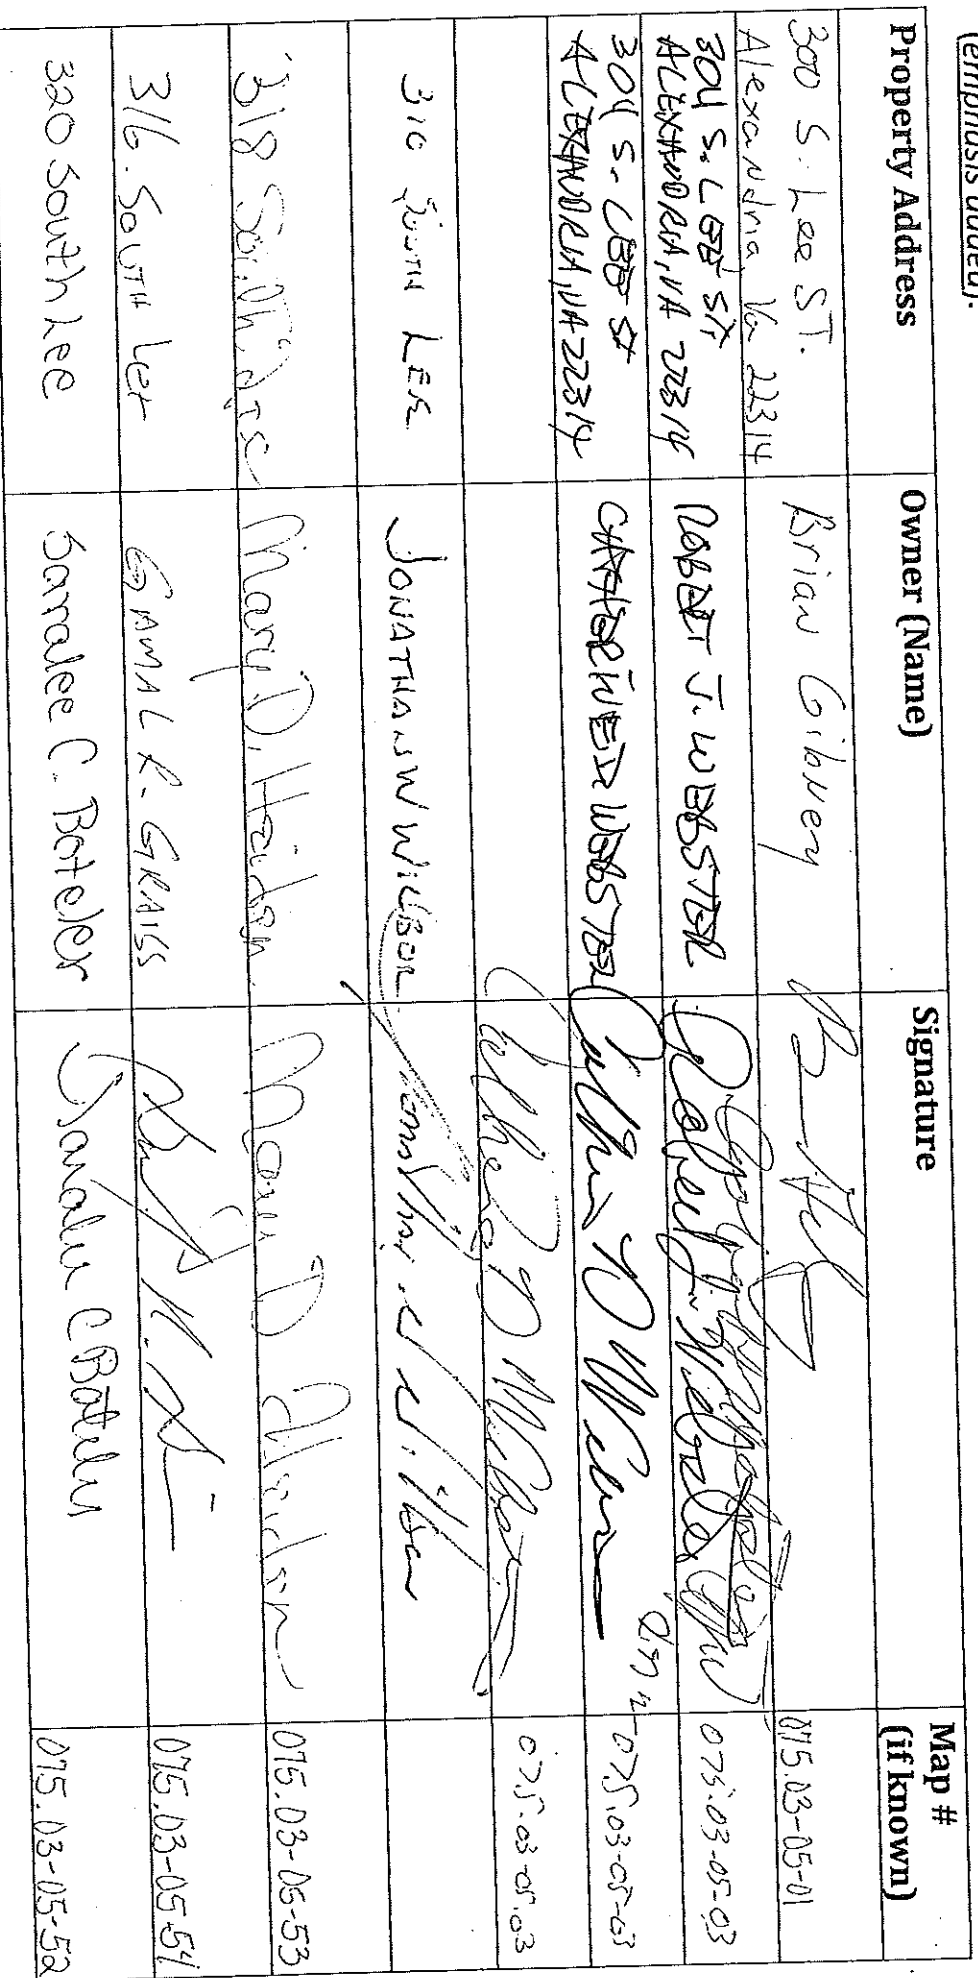 (emphasis added).
Property Address Owner (Name) Signature Map # (if known)
300 S. Lee ST. Alexandria, Va 22314 Brian Gibney 075.03-05-01
304 S. LEE ST. ALEXANDRIA, VA 22314 ROBERT J. WEBSTER Robert J. Webster 075.03-05-03
304 S. LEE ST ALEXANDRIA, VA 22314 CATHERINE D WEBSTER 075.03-05-03
075.03-05.03
310 SOUTH LEE JONATHAN W WILBOR Jonathan W Wilbor
318 South Lee Mary D. Haidon Mary D 075.03-05-53
316. SOUTH Lee GAMAL R. GRAISS 075.03-05-54
320 South Lee Sarralee C. Boteler Sarralee C Boteler 075.03-05-52